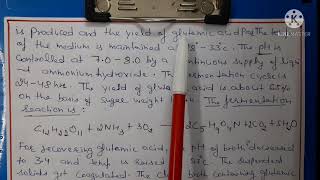 is produced and the yield of glutamic acid
of the medium is maintained 33°c. The pH is
controlled at 7.0 - 8.0 by a continuous supply of
ammonium hydroxide. The fermentation cycle is
24-48 hrs. The yield of glutamic acid is about
on the basis of sugar weight The fermentation
reaction is:
C12H22O11 + 2NH3 + 3O2 2C5H9O4N + 2CO2 + 5H2O
For recovering glutamic acid, the pH of broth decreased
to 3.4 and temp is raised The suspended
solids get coagulated. The broth containing glutamic
KINEMASTER